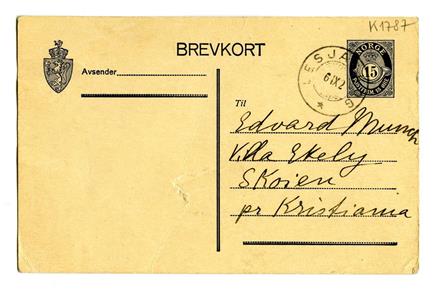 K1787
BREVKORT
Avsender
NORGE
15
LESJA
6 IX 2
Til
Edvard Munch
Villa Ekely
Skøien
pr Kristiania